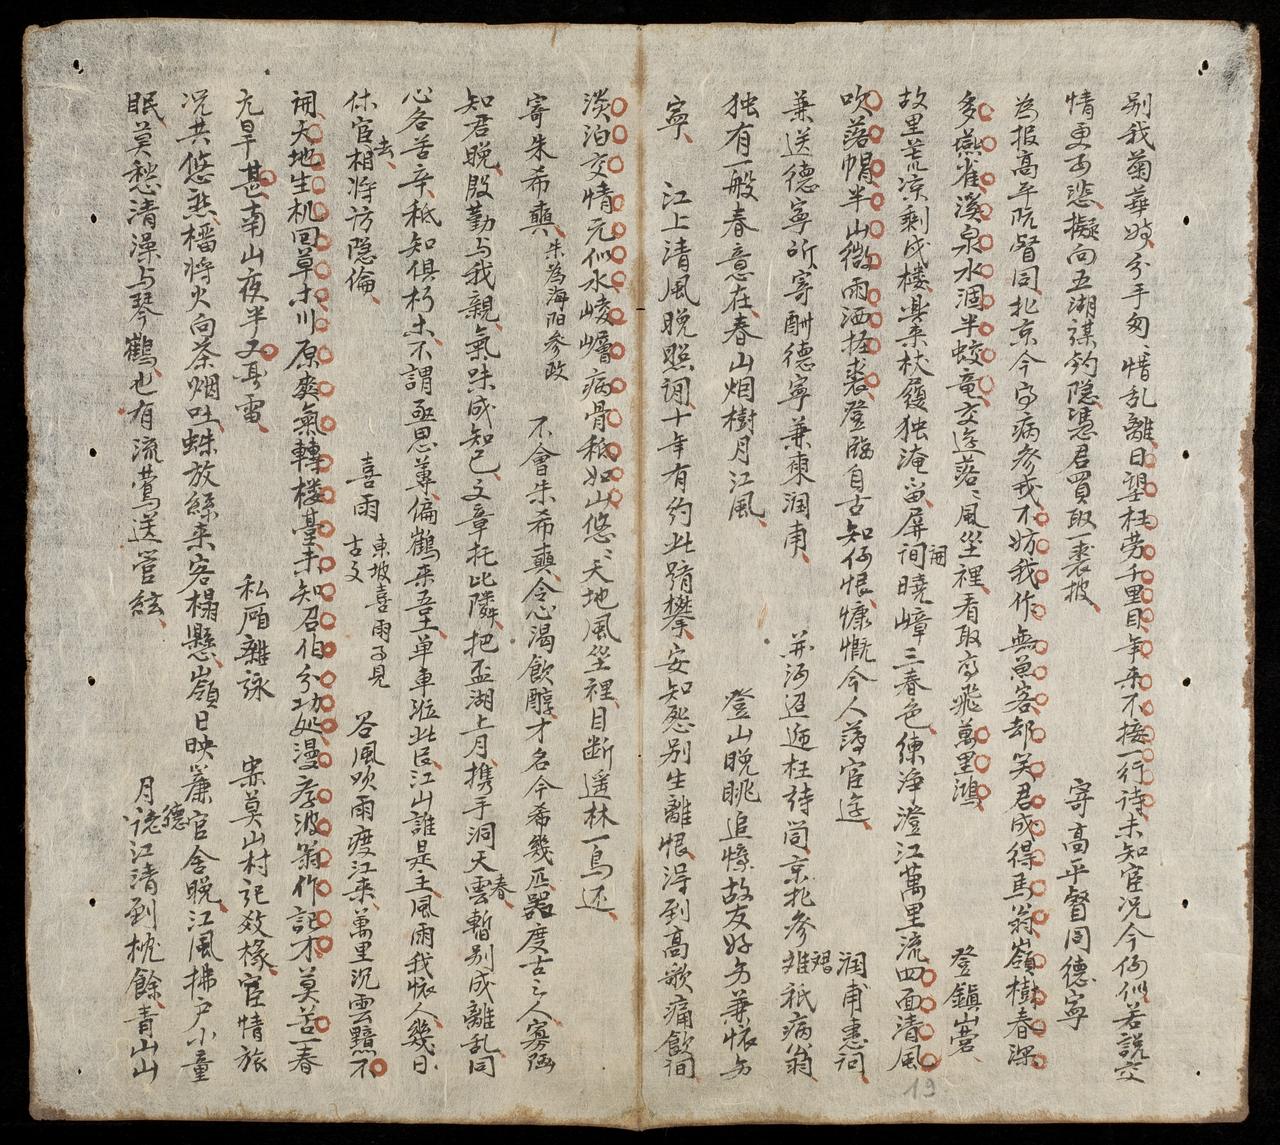 别我菊華時分手匆〻惜乱離日望枉劳千里目年来不接一行诗未知宦况今何似若説交
情更可悲擬向五湖谋钓隐憑君買取一裘披　寄高平督同德寧
為报高平阮督同北京今古病参戎不妨我作無魚客却笑君成得馬翁嶺樹春深
多燕雀溪泉水涸半蛟竜交遊落〻風尘裡看取高飛萬里鴻　登鎮山营
故里荒凉剩戍楼柴杖履独淹留屏间開曉嶂三春色練浄澄江萬里流四面清風
吹落帽半山微雨洒披裘登臨自古知何恨慷慨今人薄宦遊　润甫惠词
兼送德寧所寄酬德寧兼柬润甫　并海迢遞枉诗筒京北参雄祗病翁
独有一般春意在春山烟樹月江風　登山晚眺追懷故友好为兼怀为
寧　江上清風晚照词十年有约此躋攀安知怨别生離恨浔到高歌痛飲间
淡泊交情元似水崚嶒病骨秪如山悠〻天地風尘裡目断遥林一鳥还
寄朱希奭朱為海阳参政　不會朱希奭令心渴飲醇才名今希幾匹器度古之人寡殛
知君晚殷勤与我親氣味成知己文章托此隣把盃湖上月携手洞天春雲暫别成離乱同
心各苦辛秪知俱朽木不謂亟思蓴偏鶴乘吾土单車涖此臣江山誰是主風雨我怀人幾日
休官去相将访隐倫　喜雨東坡喜雨可見古文　谷風吹雨度江来萬里沉雲黯不
開天地生机回草木川原爽氣轉楼䑓未知召伯分功処漫孝波翁作記才莫苦一春
亢旱甚南山夜半又闻雷　私厢雜詠　寀莫山村記效椽宦情旅
况共悠然檑将火向茶烟吐蛛放絲来客榻懸嶺日映簾官舍晚江風拂户小童
眠莫愁清澡与琴鶴也有流鶯送管絃　月德江清到枕餘青山山
19